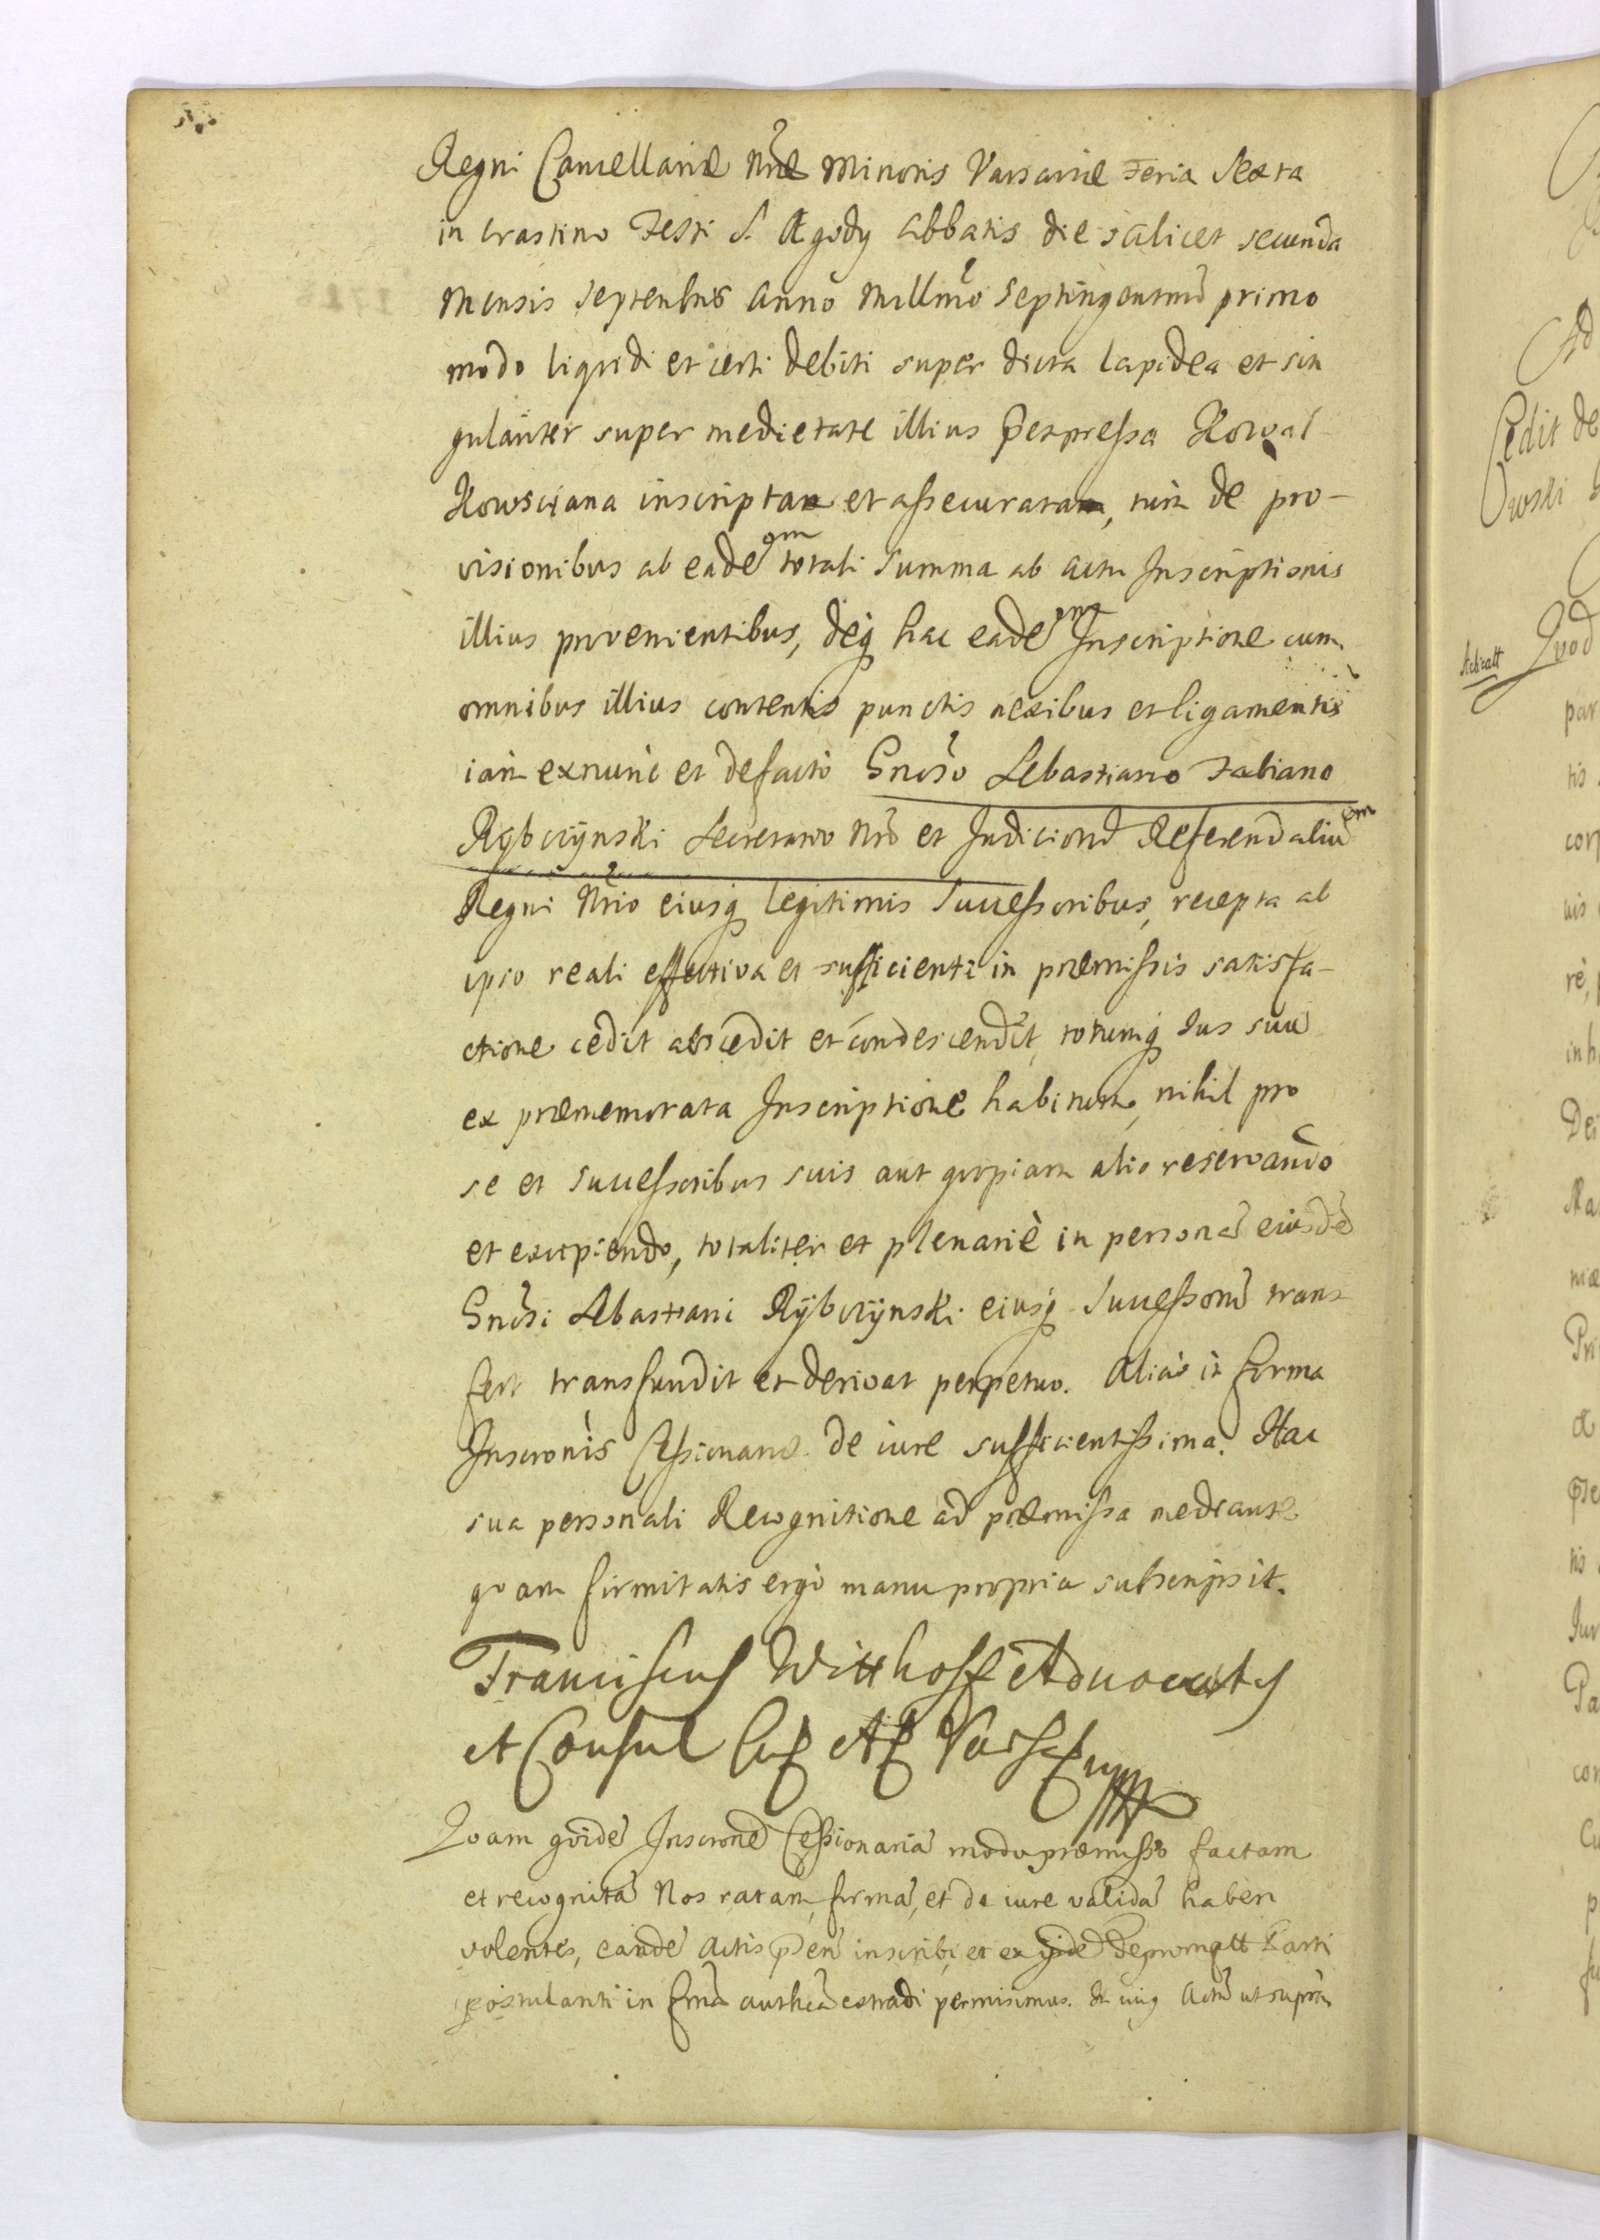 Regni Cancellariæ Nræ Minoris Varsaviæ Feria Sexta
in crastino Festi S. Ægidy Abbatis die scilicet secunda
Mensis Septembris Anno Millmo Septingentmo primo
modo liqvidi et certi debiti super dicta lapidea et sin
gulariter super medietate illius expressa Kowal
Kowsciana inscripta et assecurata, tum de pro-
visionibus ab eadem totali summa ab actu Inscriptionis
illius provenientibus, deq hac eadem Inscriptione cum
omnibus illius contentis punctis nexibus et ligamentis
iam exnunc et defacto Gnrso Sebastiano Fabiano
Rybczÿnski Secretario Nro et Judiciorū Referendaliū
Regni Nrio eiusq legitimis Successoribus, recepta ab
ipso reali effectiva et sufficienti in præmissis satisfa-
ctione cedit abscedit et condescendit, totumq Ius suū
ex præmemorata Inscriptione habitum, nihil pro
se et successoribus suis aut qvopiam alio reservando
et excipiendo, totaliter et plenariè in personā eiusdē
Gnrsi Sebastiani Rÿbczÿnski eiusq Successorū trans-
fert transfundit et derivat perpetuo. Alias in forma
Inscronis Cessionariæ de iure sufficientissima. Hac
sua personali Recognitione ad præmissa mediante
qvam firmitatis ergo manu propria subscripsit.
Franciscus Witthoff Advocatus
et Consul
Qvam qvidē Inscronē Cessionariā modo præmisso factam
et recognitā Nos ratam, firmā, et de iure validā haberi
volentes, eandē Actis inscribi, et ex ijsdē Parti
postulanti in frmā authcā extradi permisimus. Actū ut supra